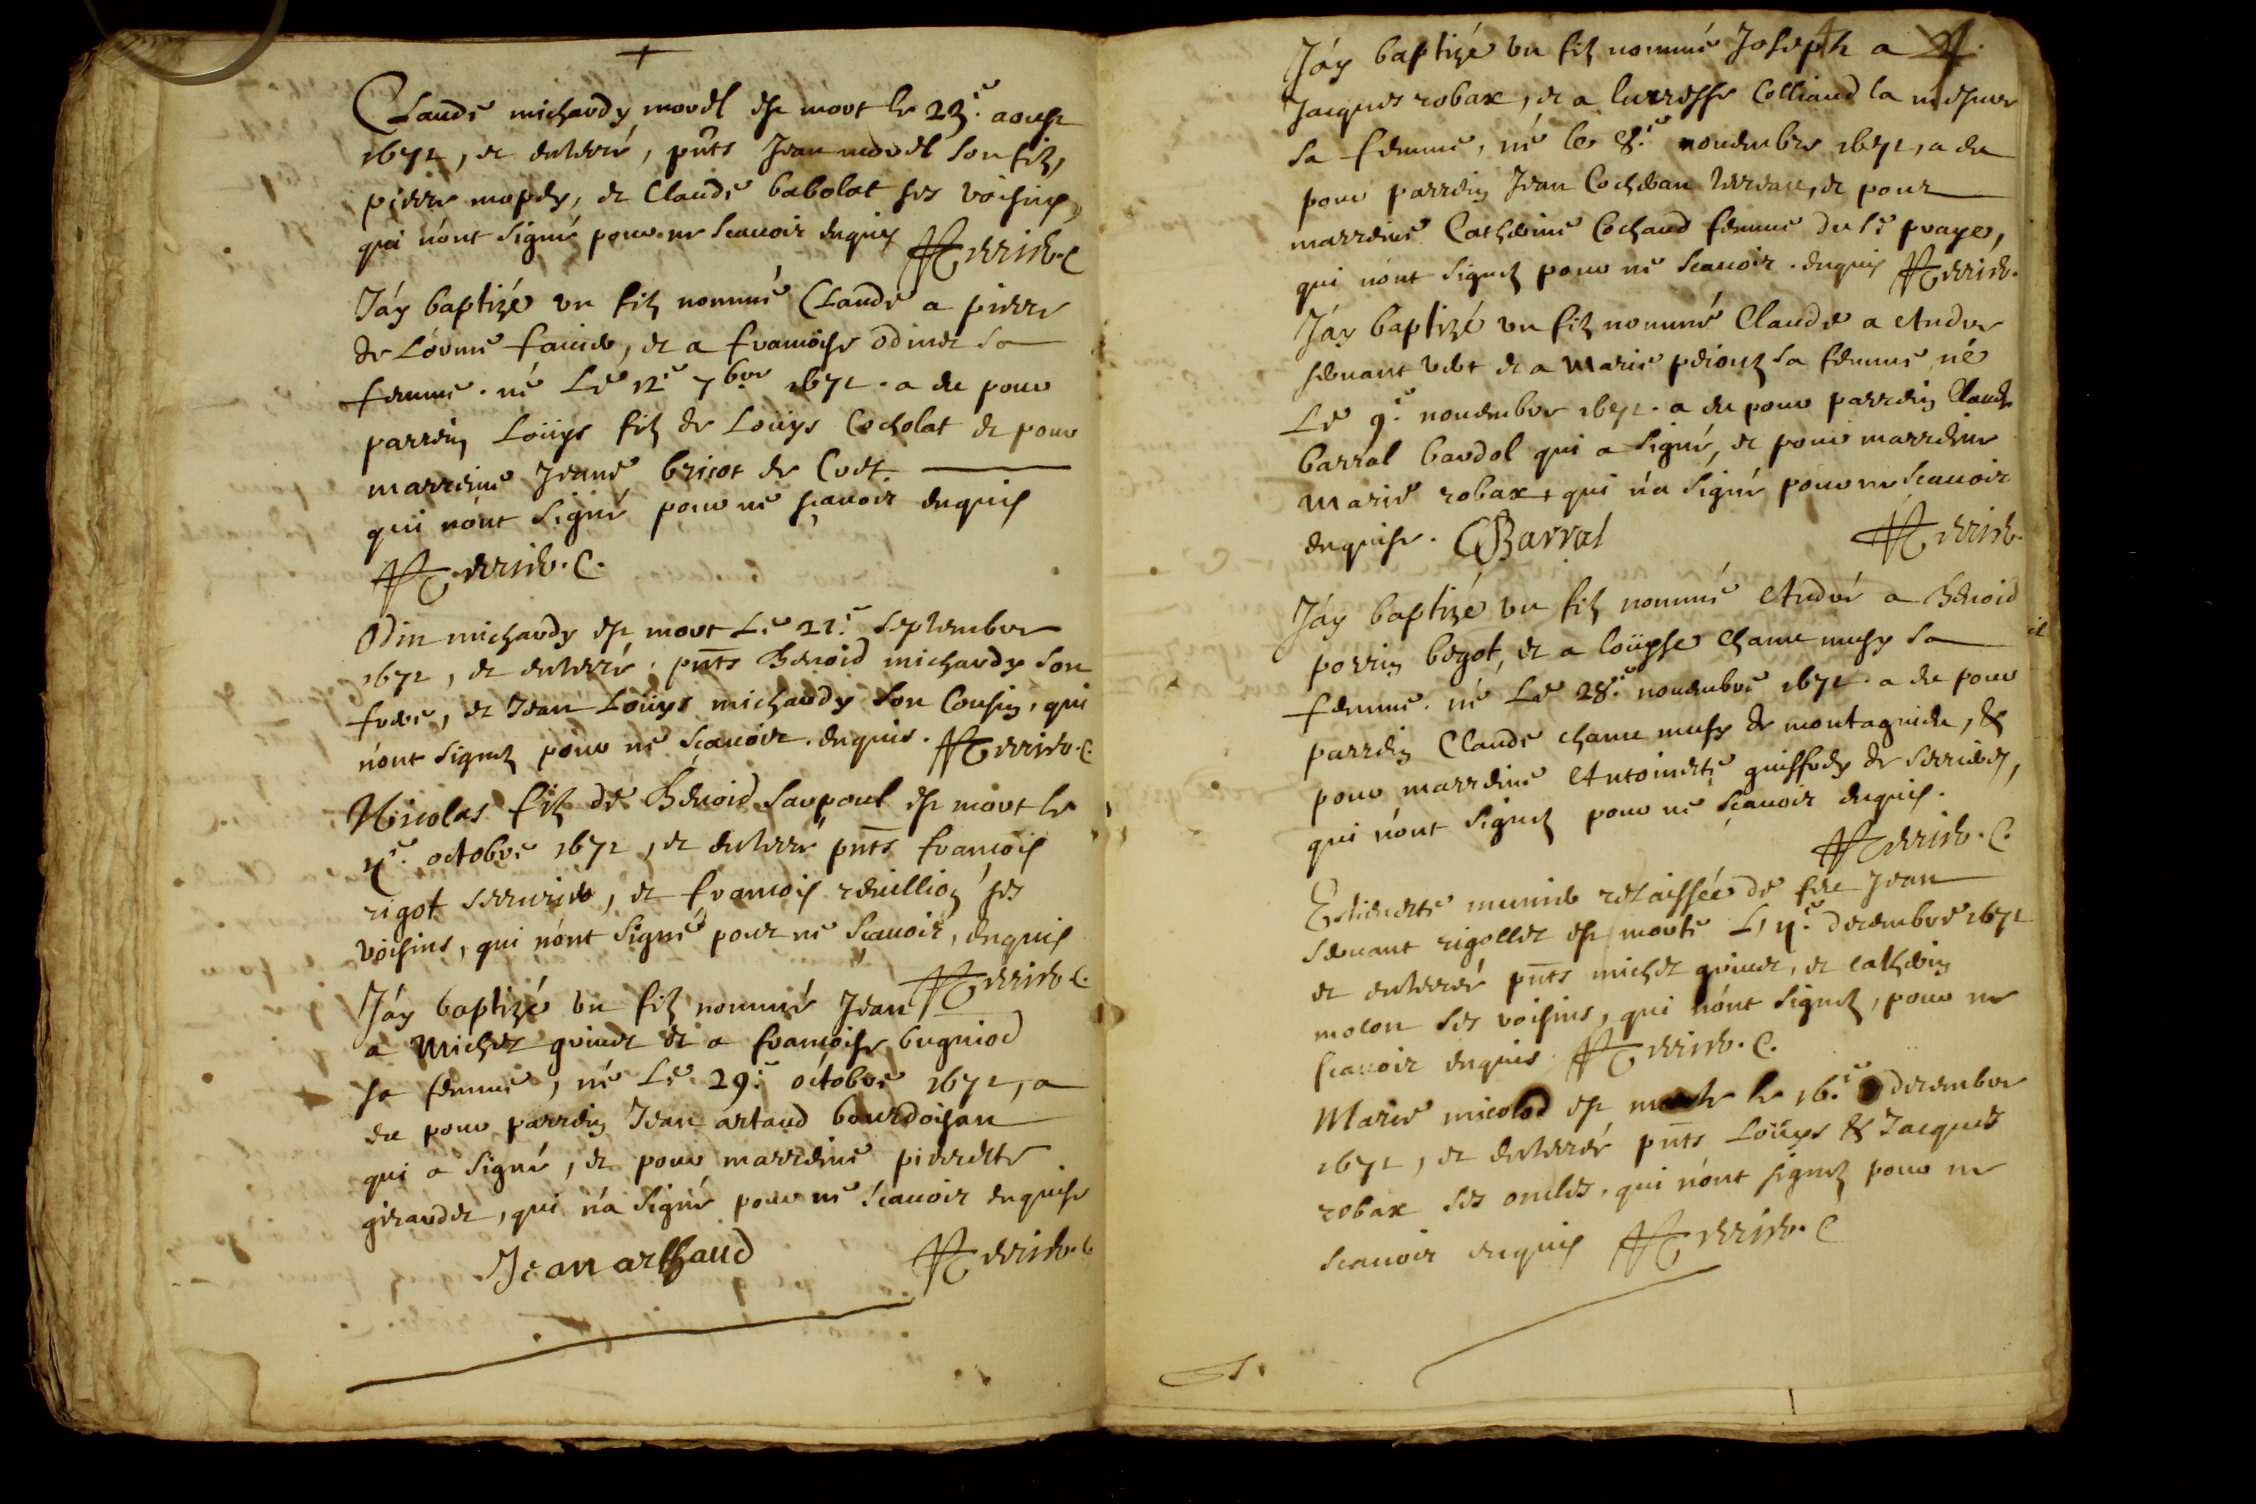 Claude michardy morel est mort le 23.e aoust
1672, et enterré, pñts Jean morel son filz,
pierre mopey, et Claude babolat ses voisins,
qui n'ont signé pour ne scauoir enquis Ferrier. C
J'ay baptizé vn filz nommé Claude a pierre
de L'orme fauier, et a francoise odinet sa
femme. né Le 12.e 7bre 1672. a eu pour
parrein Loüys filz de Loüys Cocholat et pour
marreine Jeanne bricot de Cuet
qui n'ont signé pour ne scauoir enquis
Ferrier. C.
Odin michardy est mort Le 21.e Septembre
1672, et enterré. pñts Benoid michardy son
frere, et Jean Loüys michardy son Cousin, qui
n'ont signez pour ne scauoir. enquis. Ferrier. C.
Nicolas filz de Benoid Sarpoul est mort le
4.e octobre 1672, et enterré pñts francois
rigot serrurier, et francois reuillion ses
voisins, qui n'ont signé pour ne scauoir, enquis
Ferrier C.
J'ay baptizé vn filz nommé Jean
a Michel grinet et a francoise bugniod
sa femme, né Le 29.e octobre 1672, a
eu pour parrein Jean artaud bourdoisan
qui a signé, et pour marreine pierrette
girardet, qui n'a signé pour ne scauoir enquise
Jean arthaud Ferrier. C
J'ay baptizé vn filz nommé Joseph a
Jacques robax, et a lucresse Colliaud la
sa femme, né le 8.e nouembre 1672, a eu
pour parrein Jean Cochean et pour
marreine Catherine Cochaud femme du Sr prayer,
qui n'ont signez pour ne scauoir. enquis Ferrier.
J'ay baptizé vn filz nommé Claude a Andre
seruant vert et a Marie perioux sa femme, né
Le 9.e nouembre 1672. a eu pour parrein Claude
barral bardol qui a signé, et pour marreine
Marie robax, qui n'a signé pour ne scauoir
enquise. CBarral Ferrier.
J'ay baptizé vn filz nommé André a Benoid
perrin begot, et a loüyse Chanemusy sa
femme. né Le 28.e nouembre 1672. a eu pour
parrein Claude chanemusy de montagnieu, &
pour marreine Antoinette guiffrey de serrieres,
qui n'ont signez pour ne scauoir enquis.
Ferrier. C.
Estiennette munier relaissée de feu Jean
seruant rigollet est morte Le 4.e decembre 1672
et enterrée pñts michel grinet, et catherin
molon ses voisins, qui n'ont signez, pour ne
scauoir enquis Ferrier. C.
Marie micolod est morte le 16.e decembre
1672, et enterrée pñts Loüys & Jacques
robax ses oncles. qui n'ont signez pour ne
scauoir enquis Ferrier. C